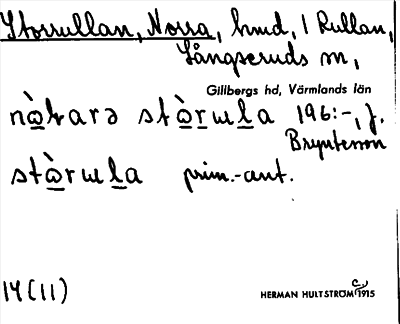 Storrullan, Norra, hmd, 1 Rullan,
Långseruds sn,
Gillbergs hd, Värmlands län
196:-, J.
Bryntesson
prim.-ant.
14(11)
HERMAN HULTSTRÖM c. 1915